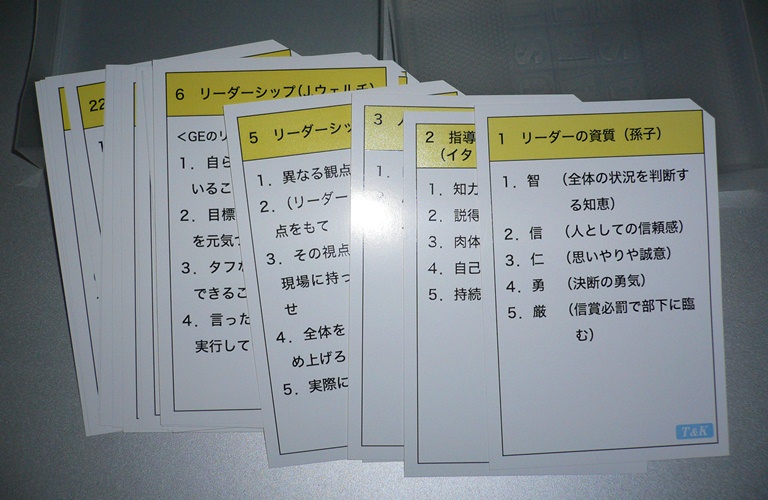 1 リーダーの資質（孫子）
1．智 （全体の状況を判断す
る知恵）
2．信 （人としての信頼感）
3．仁 （思いやりや誠意）
4．勇 （決断の勇気）
5．厳 （信賞必罰で部下に臨
む）
T&K
2 指導
（イタ
1．知力
2．説得
3．肉体
4．自己
5．持続
3 人
1．
5 リーダーシッ
1．異なる観点
2．（リーダー
点をもて
3．その視点
現場に持っ
せ
4．全体を
め上げろ
5．実際に
6 リーダーシップ（J.ウェルチ）
＜GEのリ
1．自ら
いるこ
2．目標
を元気づ
3．タフな
できるこ
4．言った
実行して
22